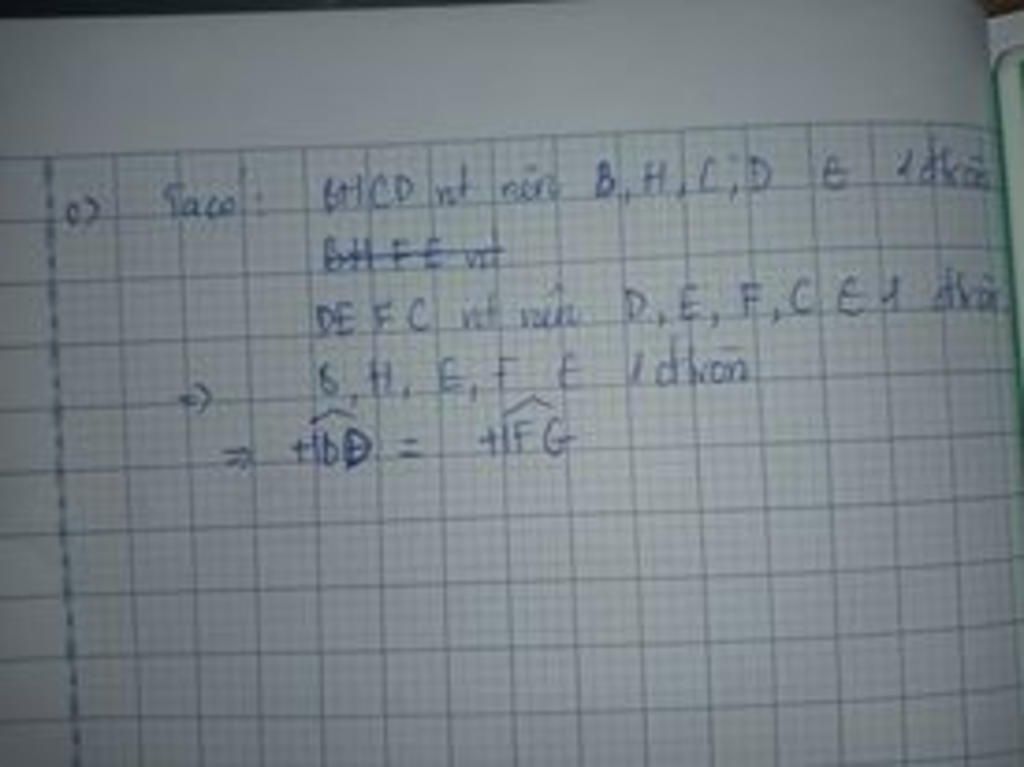 c) Ta có: BHCD nt nên B, H, C, D ∈ 1 đtròn
BHFE nt
DEFC nt nên D, E, F, C ∈ 1 đtròn
=> B, H, E, F ∈ 1 đtròn
=> HBD = HFG